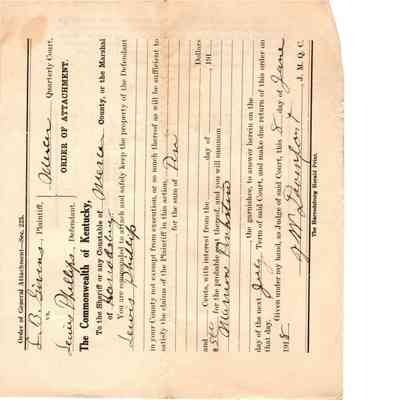 Order of General Attachment—Sec. 225.
L. B. Givens, Plaintiff,
vs.
Lewis Phillips, Defendant.
Mercer Quarterly Court.
ORDER OF ATTACHMENT.
The Commonwealth of Kentucky,
To the Sheriff or any Constable of Mercer County, or the Marshal
of Harrodsburg
You are commanded to attach and safely keep the property of the Defendant
Lewis Phillips
in your County not exempt from execution, or so much thereof as will be sufficient to
satisfy the claims of the Plaintiff in this action,
for the sum of Ten Dollars
and Cents, with interest from the day of 191
for the probable thereof, and you will summon
Marion
the garnishee, to answer herein on the
day of the next July Term of said Court, and make due return of this order on
that day.
Given under my hand, as Judge of said Court, this 8 day of June
1918
J. M. Q. C.
The Harrodsburg Herald Print.